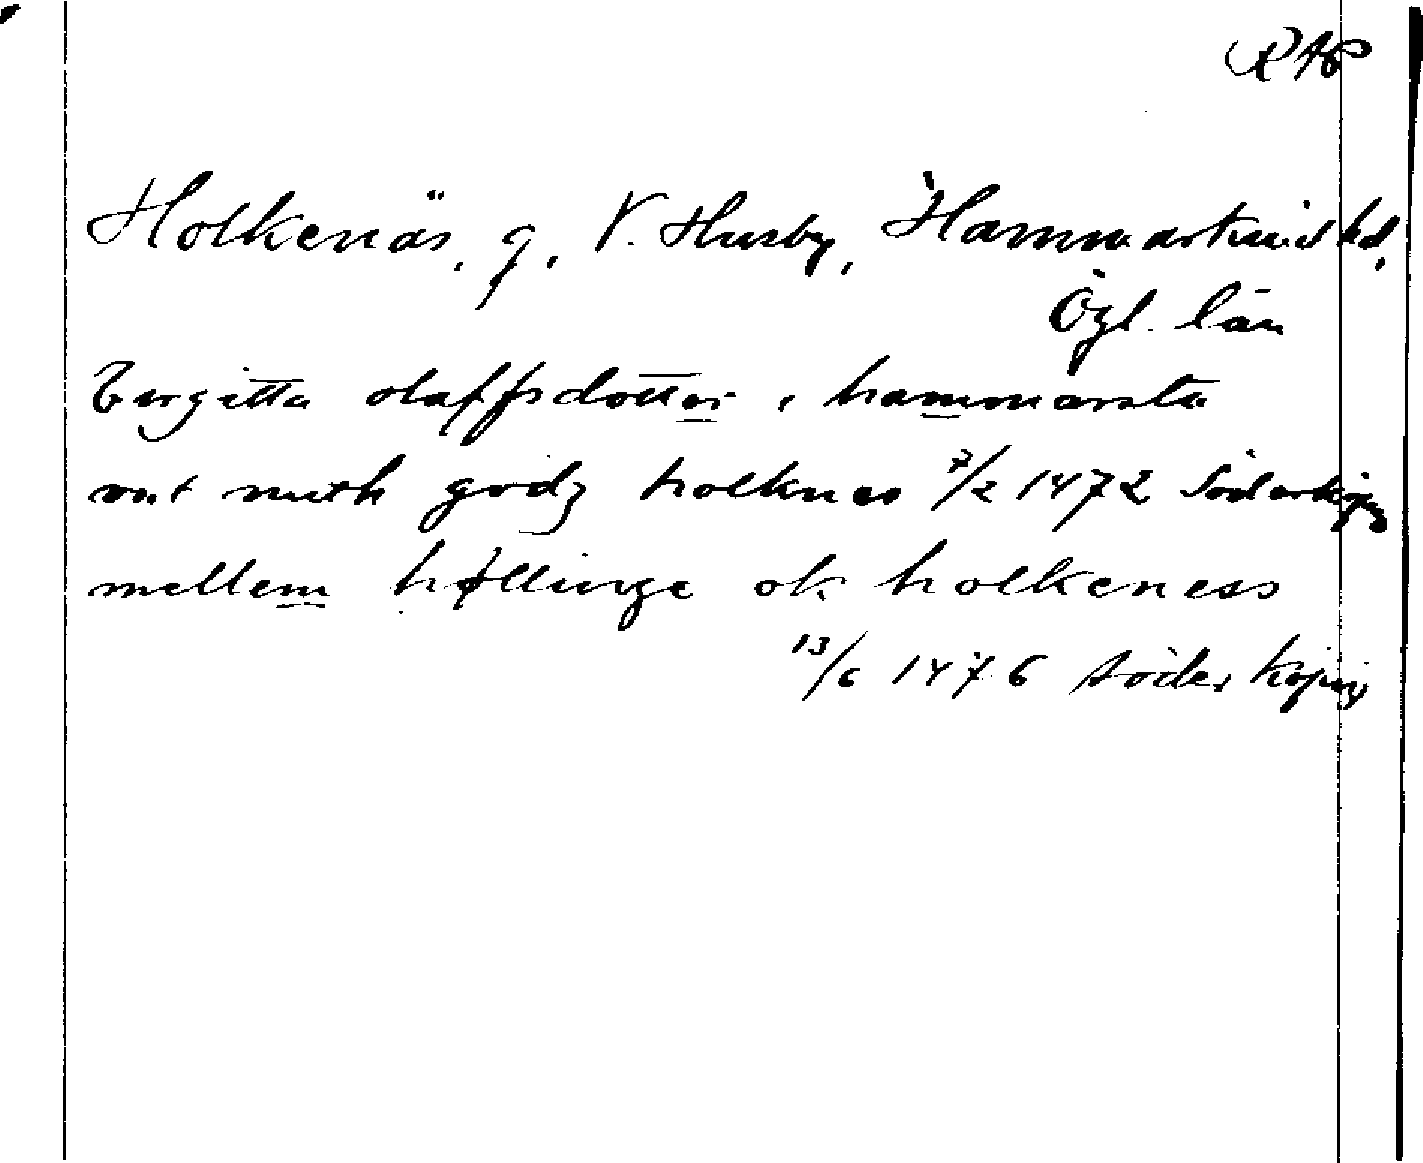 RAP
Holkenäs, g, V. Husby, Hammarkind hd,
Ögl. län
birgitta olaffsdotter i hammarsta
vm mith godz holknes 7/2 1472 Söderköping
mellem høllinge ok holkeness
13/6 1476 Söderköping